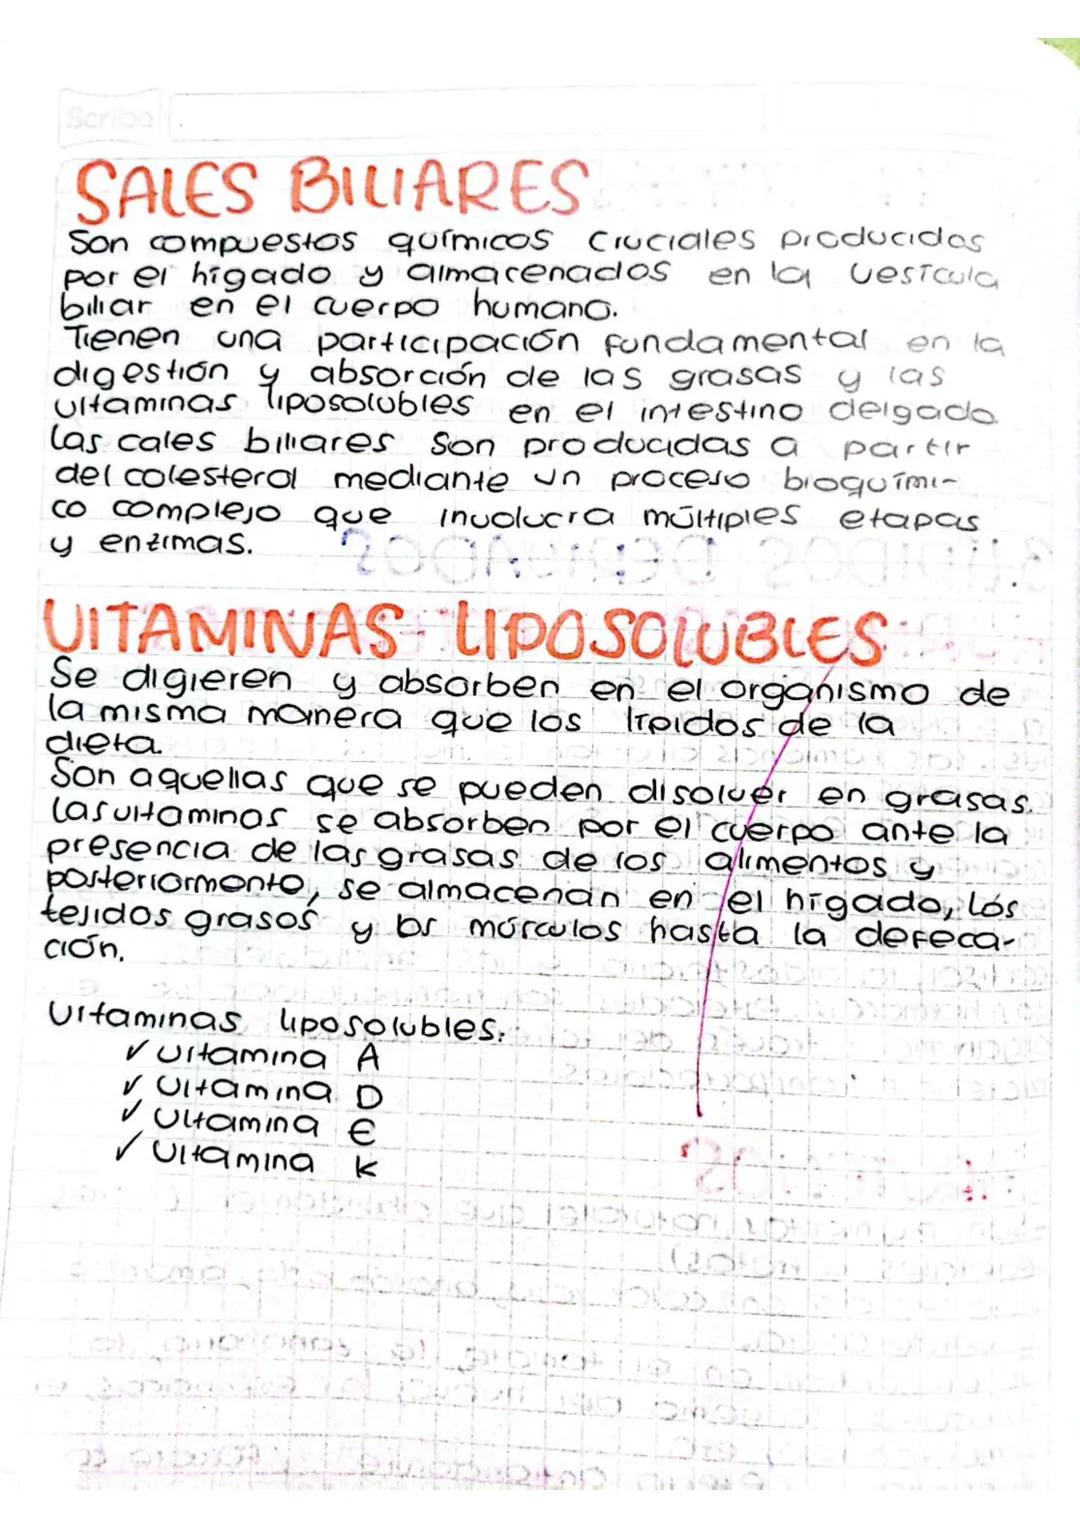 Scribe
SALES BILIARES
Son compuestos químicos cruciales producidos
por el hígado y almacenados en la vesícula
biliar en el cuerpo humano.
Tienen una participación fundamental en la
digestión y absorción de las grasas y las
vitaminas liposolubles en el intestino delgado.
Las cales biliares son producidas a partir
del colesterol mediante un proceso bioquími-
co complejo que involucra múltiples etapas
y enzimas.
VITAMINAS LIPOSOLUBLES
Se digieren y absorben en el organismo de
la misma manera que los lípidos de la
dieta.
Son aquellas que se pueden disolver en grasas.
Las vitaminas se absorben por el cuerpo ante la
presencia de las grasas de los alimentos y
posteriormente, se almacenan en el hígado, los
tejidos grasos y los músculos hasta la defeca-
ción.
Vitaminas liposolubles:
✓ Vitamina A
✓ Vitamina D
✓ Vitamina E
✓ Vitamina K